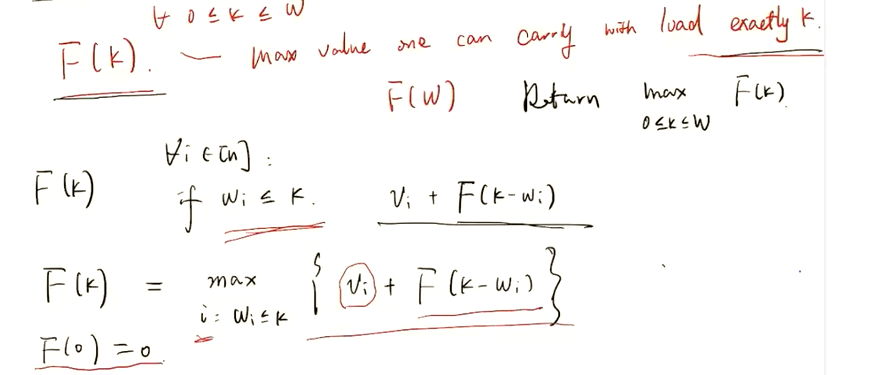 ∀ 0 ≤ k ≤ W
F(k). — max value one can carry with load exactly k.
F(W) Return max F(k)
0≤k≤W
F(k) ∀i ∈ [n] :
if wᵢ ≤ k. vᵢ + F(k-wᵢ)
F(k) = max { vᵢ + F(k-wᵢ) }
i: wᵢ≤k
F(0) = 0